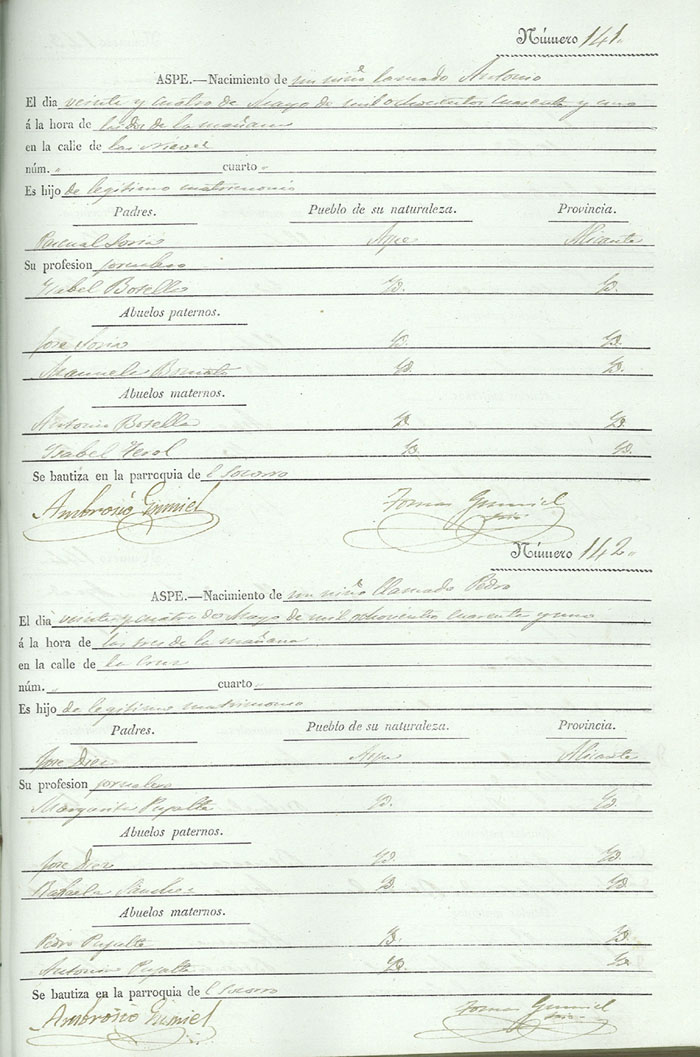 Número 141.
ASPE.—Nacimiento de un niño llamado Antonio
El dia veinte y cuatro de Mayo de mil ochocientos cuarenta y uno
á la hora de las dos de la mañana
en la calle de las Nieves
núm. " cuarto "
Es hijo de legitimo matrimonio
Padres. Pueblo de su naturaleza. Provincia.
Pascual Soria Aspe Alicante
Su profesion jornalero
Isabel Botella Yd. Yd.
Abuelos paternos.
Jose Soria Yd. Yd.
Manuela Yd. Yd.
Abuelos maternos.
Antonio Botella Yd. Yd.
Ysabel Terol Yd. Yd.
Se bautiza en la parroquia de el Socorro
Ambrosio Gumiel Tomas Gumiel
Número 142.
ASPE.—Nacimiento de un niño llamado Pedro
El dia veinte y cuatro de Mayo de mil ochocientos cuarenta y uno
á la hora de las tres de la mañana
en la calle de la Cruz
núm. " cuarto "
Es hijo de legitimo matrimonio
Padres. Pueblo de su naturaleza. Provincia.
Jose Diez Aspe Alicante
Su profesion jornalero
Margarita Pujalte Yd. Yd.
Abuelos paternos.
Jose Diez Yd. Yd.
Rafaela Sanchez Yd. Yd.
Abuelos maternos.
Pedro Pujalte Yd. Yd.
Antonia Pujalte Yd. Yd.
Se bautiza en la parroquia de el Socorro
Ambrosio Gumiel Tomas Gumiel